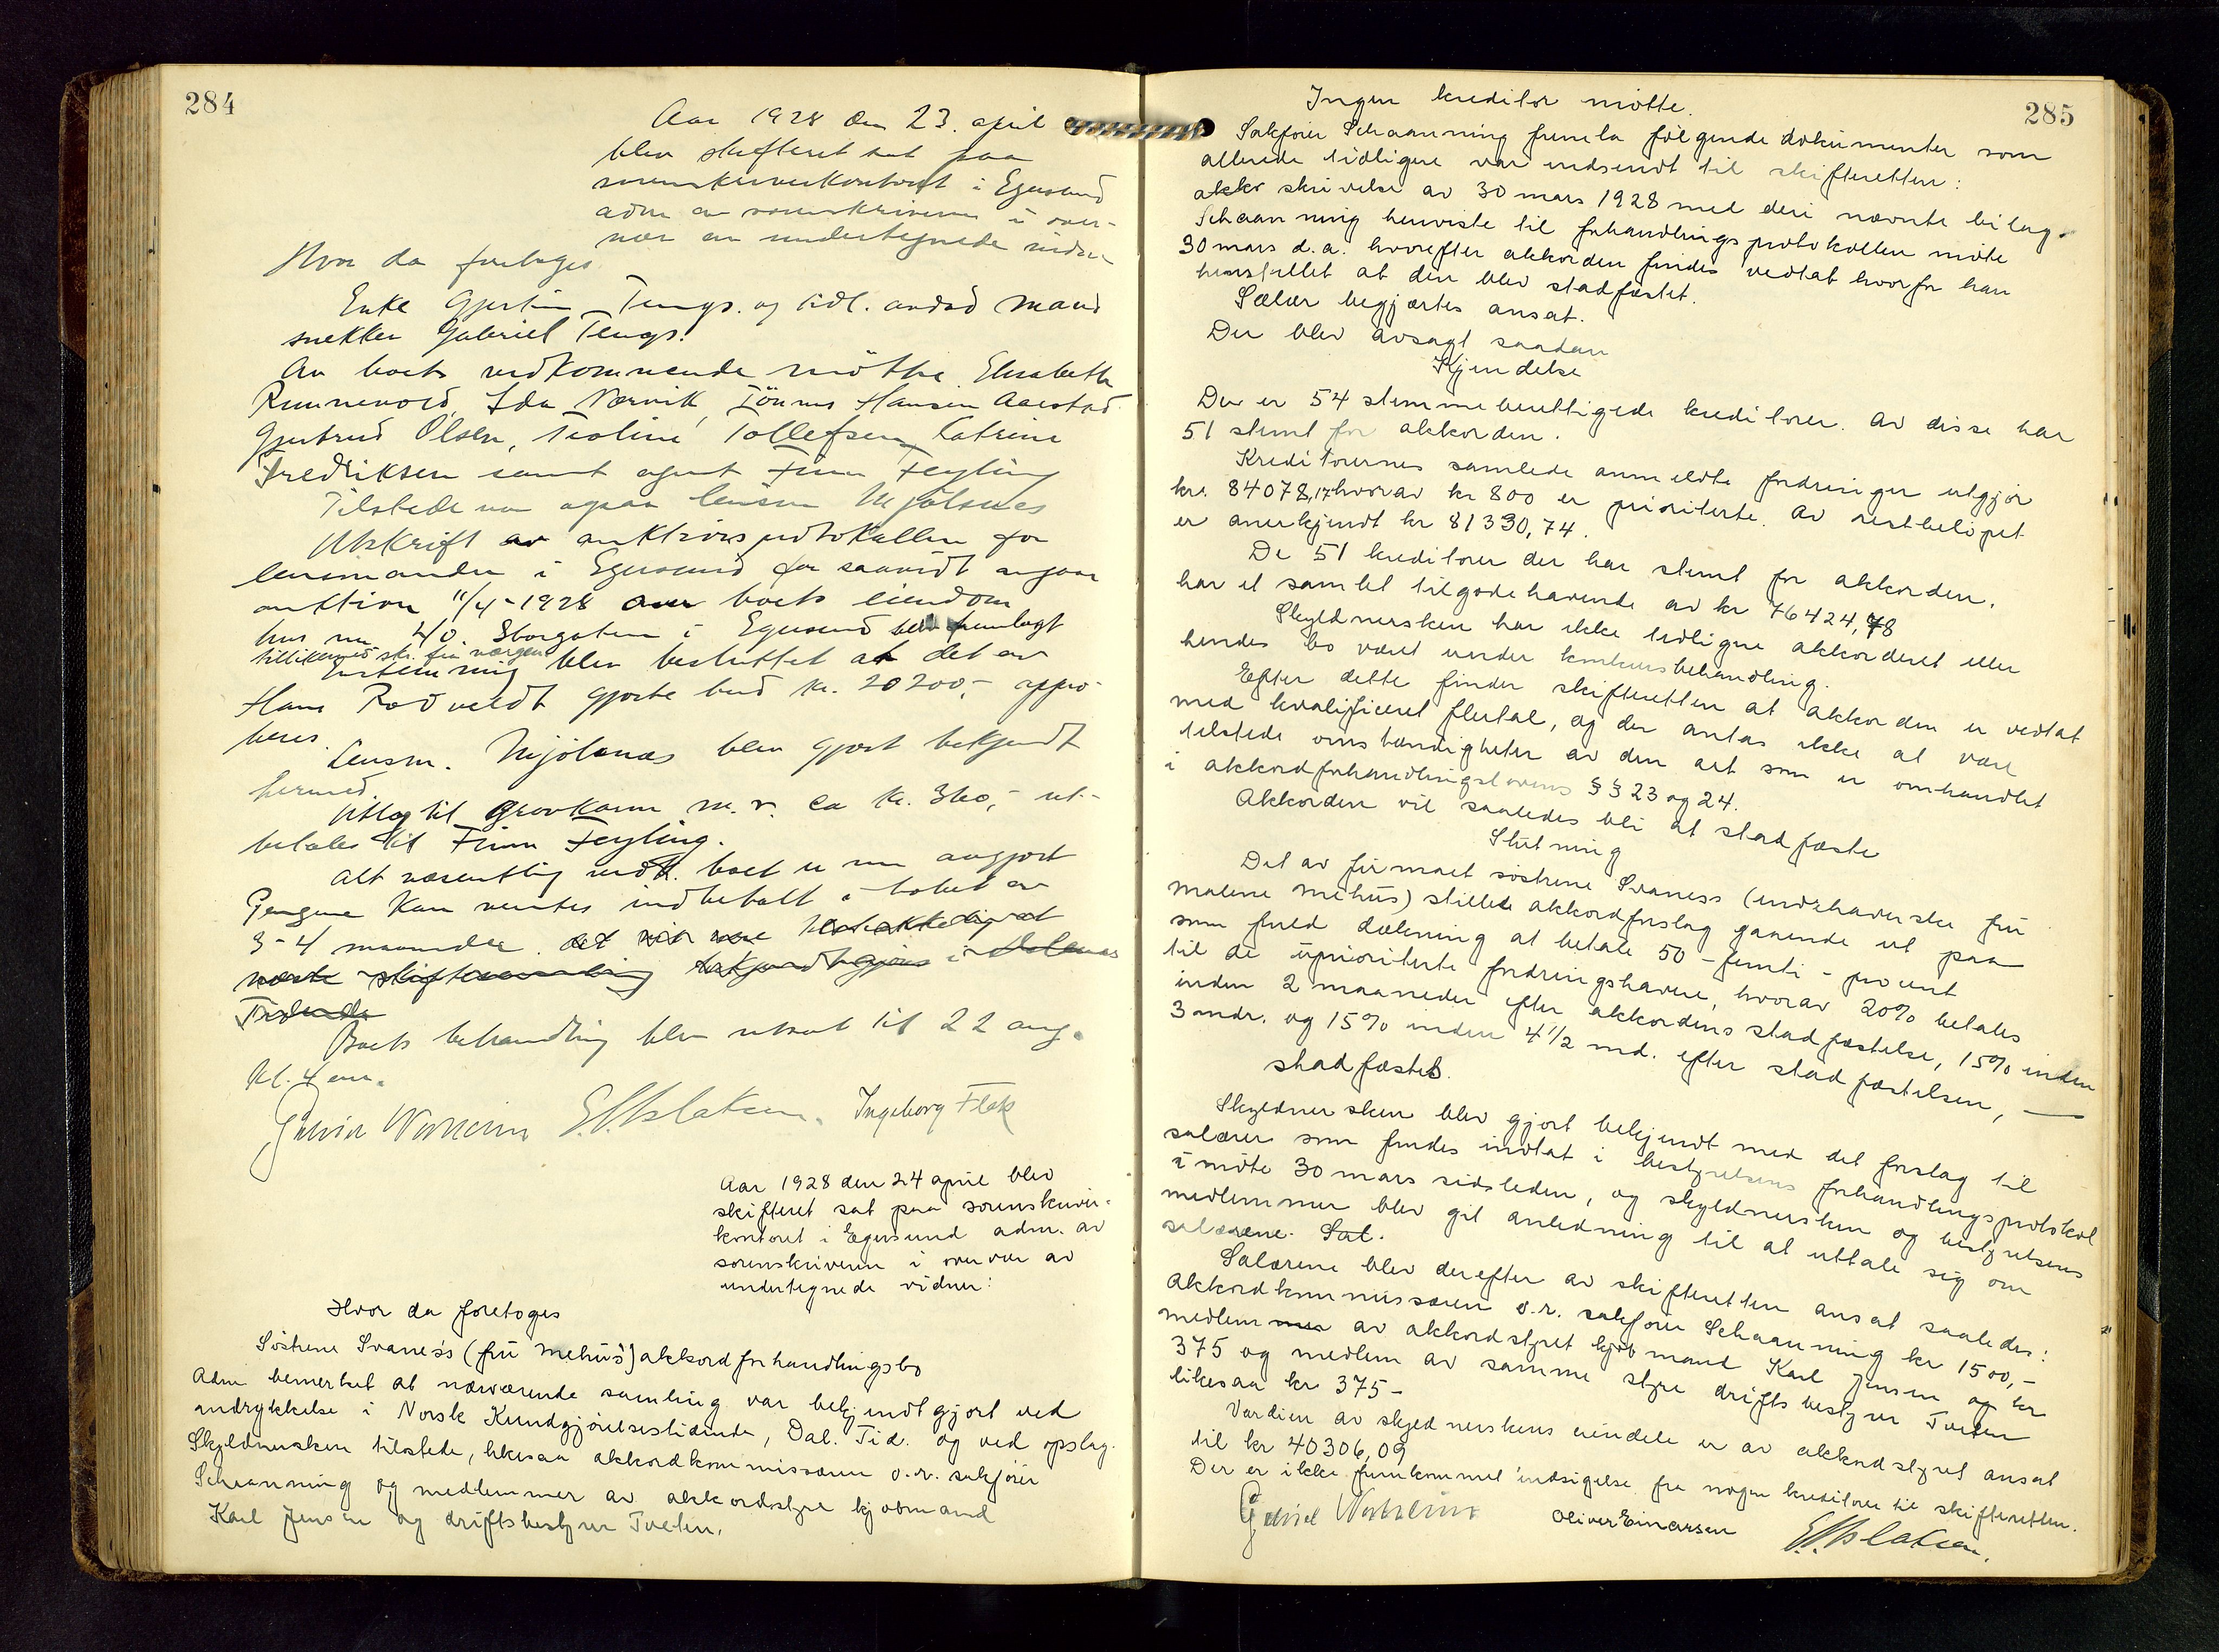 284
Aar 1928 den 23. april
blev skifteret sat paa
sorenskriverkontoret i Egersund
adm av sorenskriveren i over-
vær av undertegnede vidner
Hvor da foretoges
Enke Gjertine Tengs. og tidl. avdød mand
snekker Gabriel Tengs.
Av boets vedkommende møtte Elisabeth
Runnevold, Ida Nervik, Tönnes Hansen Aarstad
Gjertrud Olsen, Teoline Tollefsen, Catrine
Fredriksen samt agent Finn Feyling
Tilstede var ogsaa lensm Mjölsnes
Utskrift av auktionsprotokollen for
lensmanden i Egersund for saavidt angaar
auktion 11/4-1928 over boets eiendom
hus nr 40. Storgaten i Egersund blev fremlagt
tillikemed skr. fra værgen
Enstemmig blev besluttet at det av
Hans Rødveldt gjorte bud kr. 20200,- appro-
beres.
Lensm. Mjölsnes blev gjort bekjendt
hermed.
Utlæg til gravkam m.v. ca kr. 360,- ut-
betales til Finn Feyling.
Alt væsentlig vedk. boet er nu avgjort
Pengene kan ventes indbetalt i løbet av
3-4 maaneder det
næste skiftesamling bekjendtgjøres i Dalernes
Tidende
Boets behandling blev utsat til 22 aug.
kl. 4 em.
Ingeborg Flek
Aar 1928 den 24 april blev
skifteret sat paa sorenskriver-
kontoret i Egersund adm. av
sorenskriveren i overvær av
undertegnede vidner:
Hvor da foretoges
Søstrene Svaness (fru Mehus) akkordforhandlingsbo
Adm bemerket at nærværende samling var bekjendtgjort ved
indrykkelse i Norsk Kundgjørelsestidende, Dal. Tid. og ved opslag.
Skyldnersken tilstede, likesaa akkordkommissæren o.r. sakfører
Schaanning og medlemmer av akkordstyre kjøbmand
Karl Jensen og driftsbestyrer Tveten.
285
Ingen kreditor møtte.
Sakfører Schaanning fremla følgende dokumenter som
allerede tidligere var indsendt til skifteretten:
akks skrivelse av 30 mars 1928 med deri nævnte bilag.
Schaanning henviste til forhandlingsprotokollen møte
30 mars d.a. hvorefter akkorden findes vedtat hvorfor han
henstillet at den blev stadfæstet.
Salær begjærtes ansat.
Der blev avsagt saadan
Kjendelse
Der er 54 stemmeberettigede kreditorer. Av disse har
51 stemt for akkorden.
Kreditorernes samlede anmeldte fordringer utgjør
kr. 84078,17 hvorav kr 800 er prioriterte. Av restbeløpet
er anerkjendt kr 81330,74.
De 51 kreditorer der har stemt for akkorden,
har et samlet tilgodehavende av kr 76424,78
Skyldnersken har ikke tidligere akkorderet eller
hendes bo været under konkursbehandling.
Efter dette finder skifteretten at akkorden er vedtat
med kvalificeret flertal, og der antas ikke at være
tilstede omstændigheter av den art som er omhandlet
i akkordforhandlingslovens §§ 23 og 24.
Akkorden vil saaledes bli at stadfæste
Slutning
Det av firmaet søstrene Svaness (indehaverske fru
Malene Mehus) stillede akkordforslag gaaende ut paa
som fuld dækning at betale 50 - femti - procent
til de uprioriterte fordringshavere, hvorav 20% betales
inden 2 maaneder efter akkordens stadfæstelse, 15% inden
3 mdr. og 15% inden 4 1/2 md. efter stadfæstelsen, —
stadfæstes.
Skyldnersken blev gjort bekjendt med det forslag til
salærer som findes indtat i bestyrelsens forhandlingsprotokol
i møte 30 mars sidstleden, og skyldnersken og bestyrelsens
medlemmer blev git anledning til at uttale sig om
salærene. Sal.
Salærene blev derefter av skifteretten ansat saaledes:
Akkordkommissæren o.r. sakfører Schaanning kr 1500,-
medlemmer av akkordstyret kjøbmand Karl Jensen og kr
375 og medlem av samme styre driftsbestyrer Tveten
likesaa kr 375-
Værdien av skyldnerskens eiendele er av akkordstyret ansat
til kr 40306,09
Der er ikke fremkommet indsigelse fra nogen kreditorer til skifteretten.
Oliver Einarsen